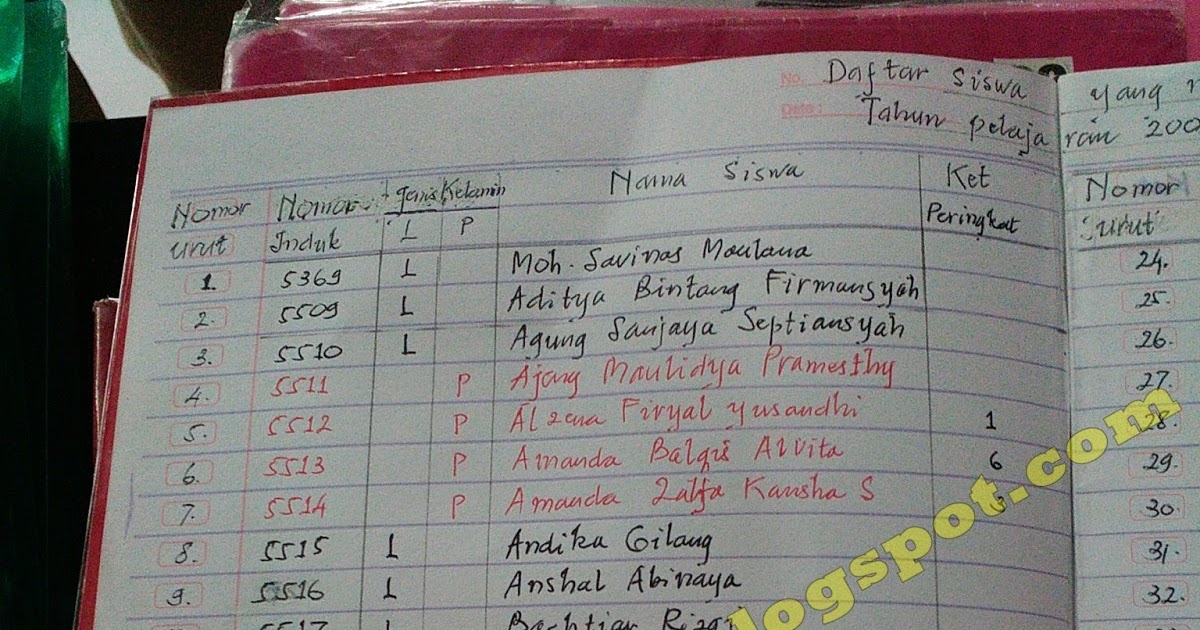 No. Daftar siswa yang
Date: Tahun pelajaran 200
Nomor urut Nomor Induk Jenis Kelamin L P Nama Siswa Ket Peringkat Nomor urut
1. 5369 L Moh. Savinas Maulana 24.
2. 5509 L Aditya Bintang Firmansyah 25.
3. 5510 L Agung Sanjaya Septiansyah 26.
4. 5511 P Ajang Maulidya Pramesthy 27.
5. 5512 P Alzena Firyal Yusandhi 1 28.
6. 5513 P Amanda Balqis Alvita 6 29.
7. 5514 P Amanda Zalfa Kansha S 3 30.
8. 5515 L Andika Gilang 31.
9. 5516 L Anshal Abinaya 32.
5517 L Bachtiar Rizqi
logspot.com